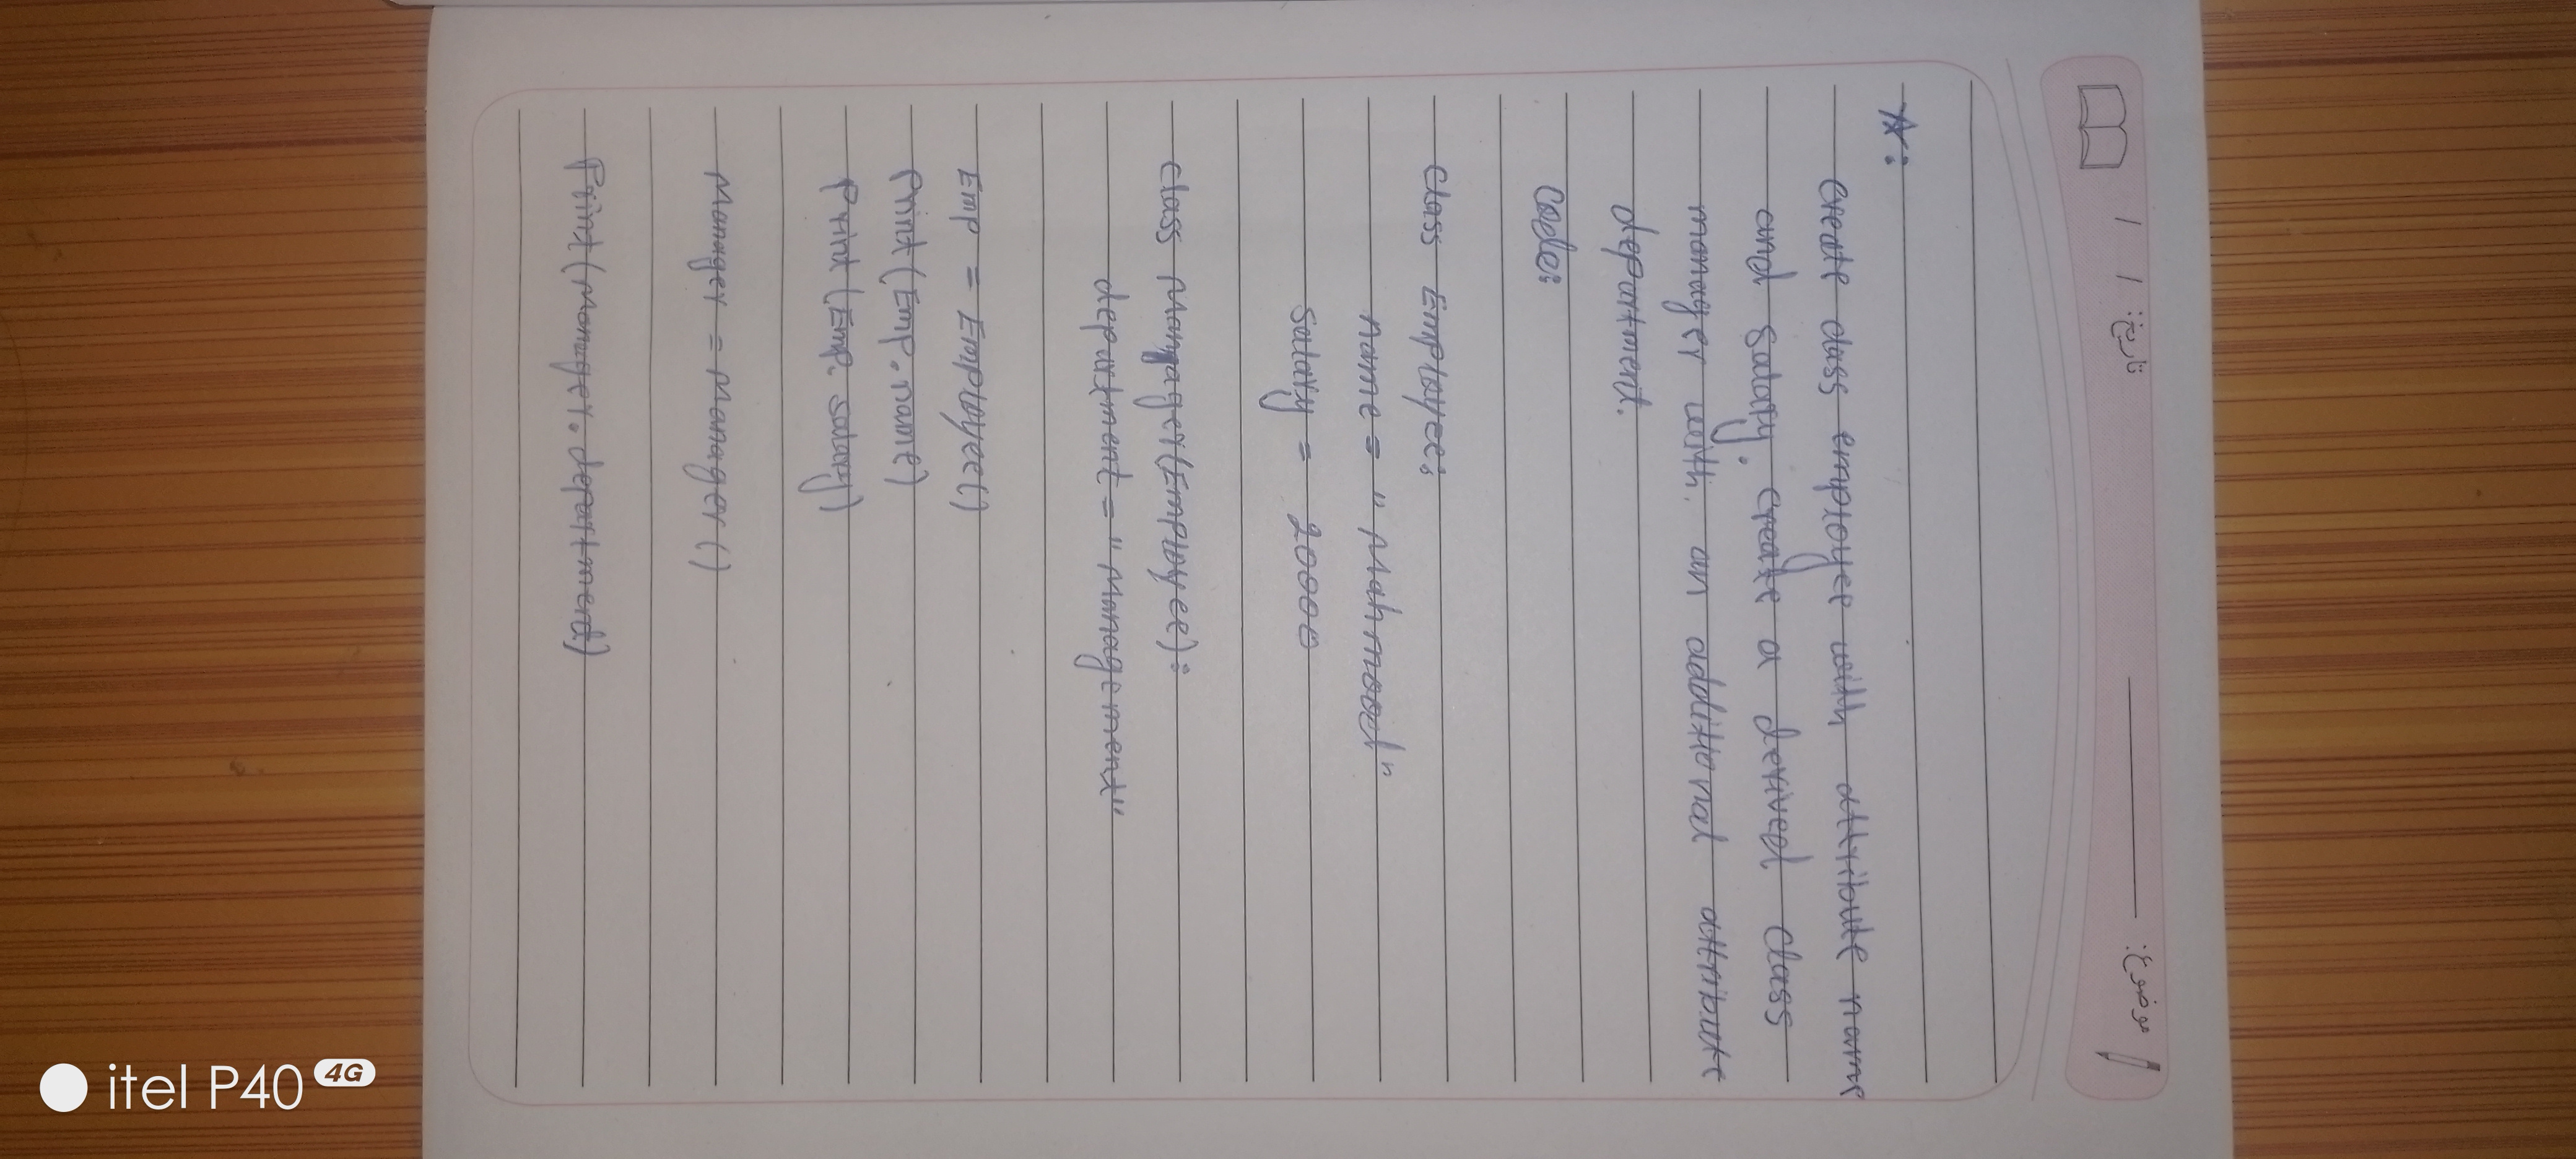 تاریخ: / / موضوع:
*:
Create class employee with attribute name
and salary. create a derived class
manager with an additional attribute
department.
Code:
class Employee:
name = "Mahmood"
salary = 20000
class Manager(Employee):
department = "Management"
Emp = Employee()
Print(Emp.name)
Print(Emp.salary)
Manager = Manager()
Print(Manager.department)
itel P40 4G